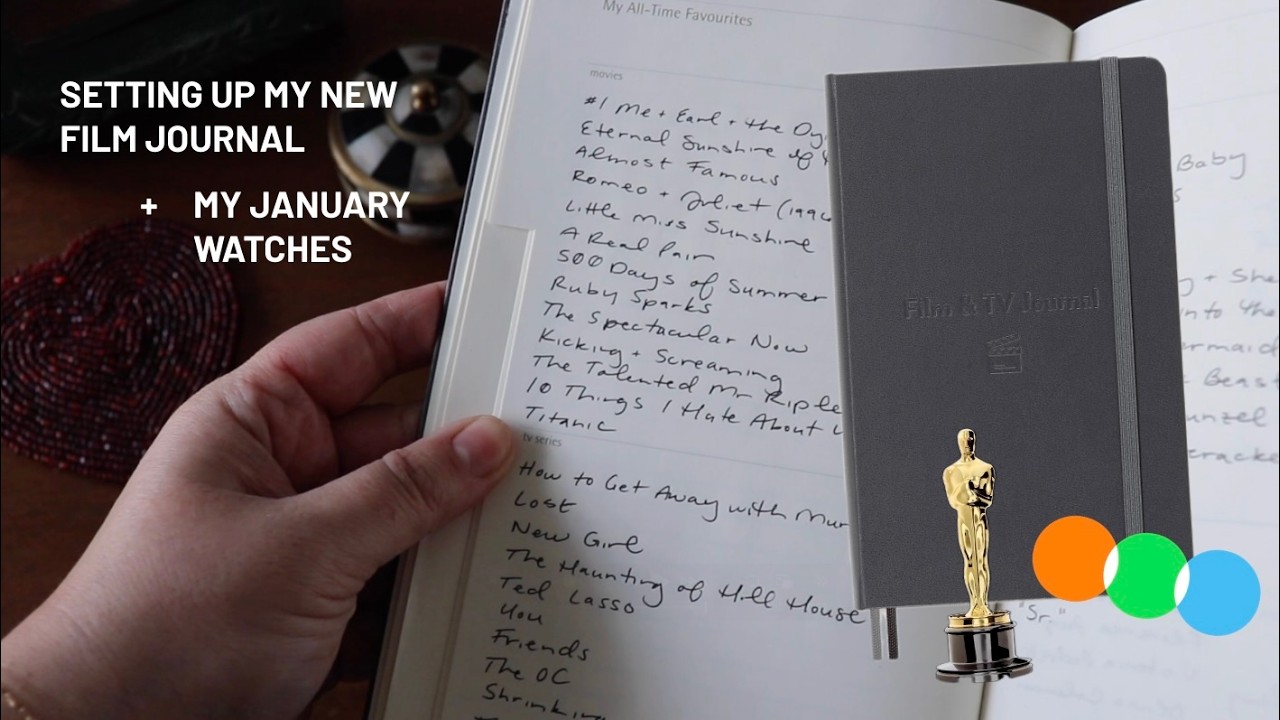 SETTING UP MY NEW
FILM JOURNAL
+ MY JANUARY
WATCHES
My All-Time Favourites
movies
#1 Me + Earl + the
Eternal Sunshine of
Almost Famous
Romeo + Juliet (199
Little Miss Sunshine
A Real Pain
500 Days of Summer
Ruby Sparks
The Spectacular Now
Kicking + Screaming
The Talented Mr Riple
10 Things I Hate About
Titanic
tv series
How to Get Away with Mur
Lost
New Girl
The Haunting of Hill House
Ted Lasso
You
Friends
The OC
Shrinking
Film & TV Journal
Baby
+ She
into the
ermaid
Beast
unzel
cracke
"Sr."